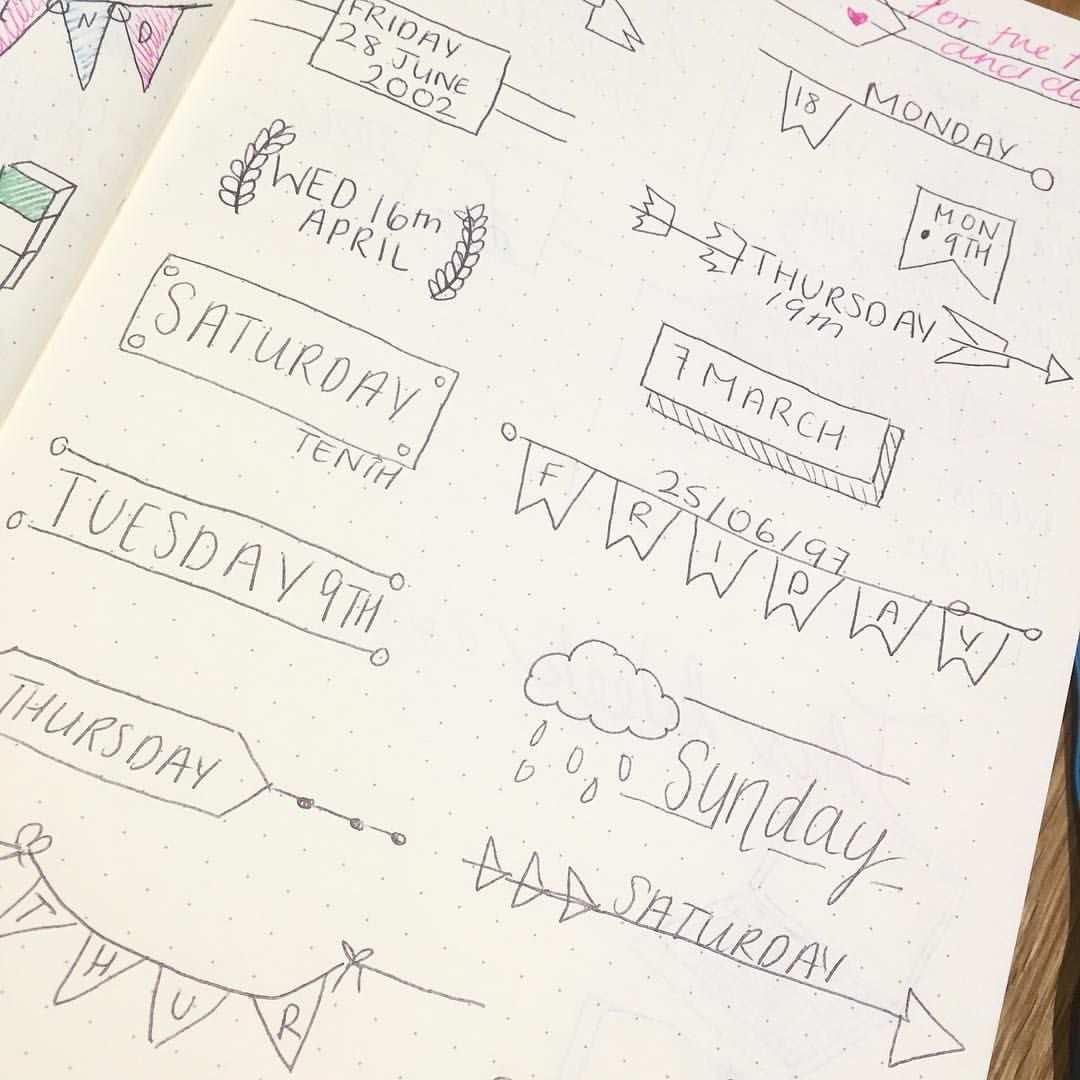 N D
FRIDAY
28 JUNE
2002
for the
and
18 MONDAY
WED 16th
APRIL
MON
• 9TH
THURSDAY
19th
SATURDAY
TENTH
7 MARCH
25/06/97
F R I D A Y
TUESDAY 9TH
THURSDAY
Sunday
SATURDAY
T H U R